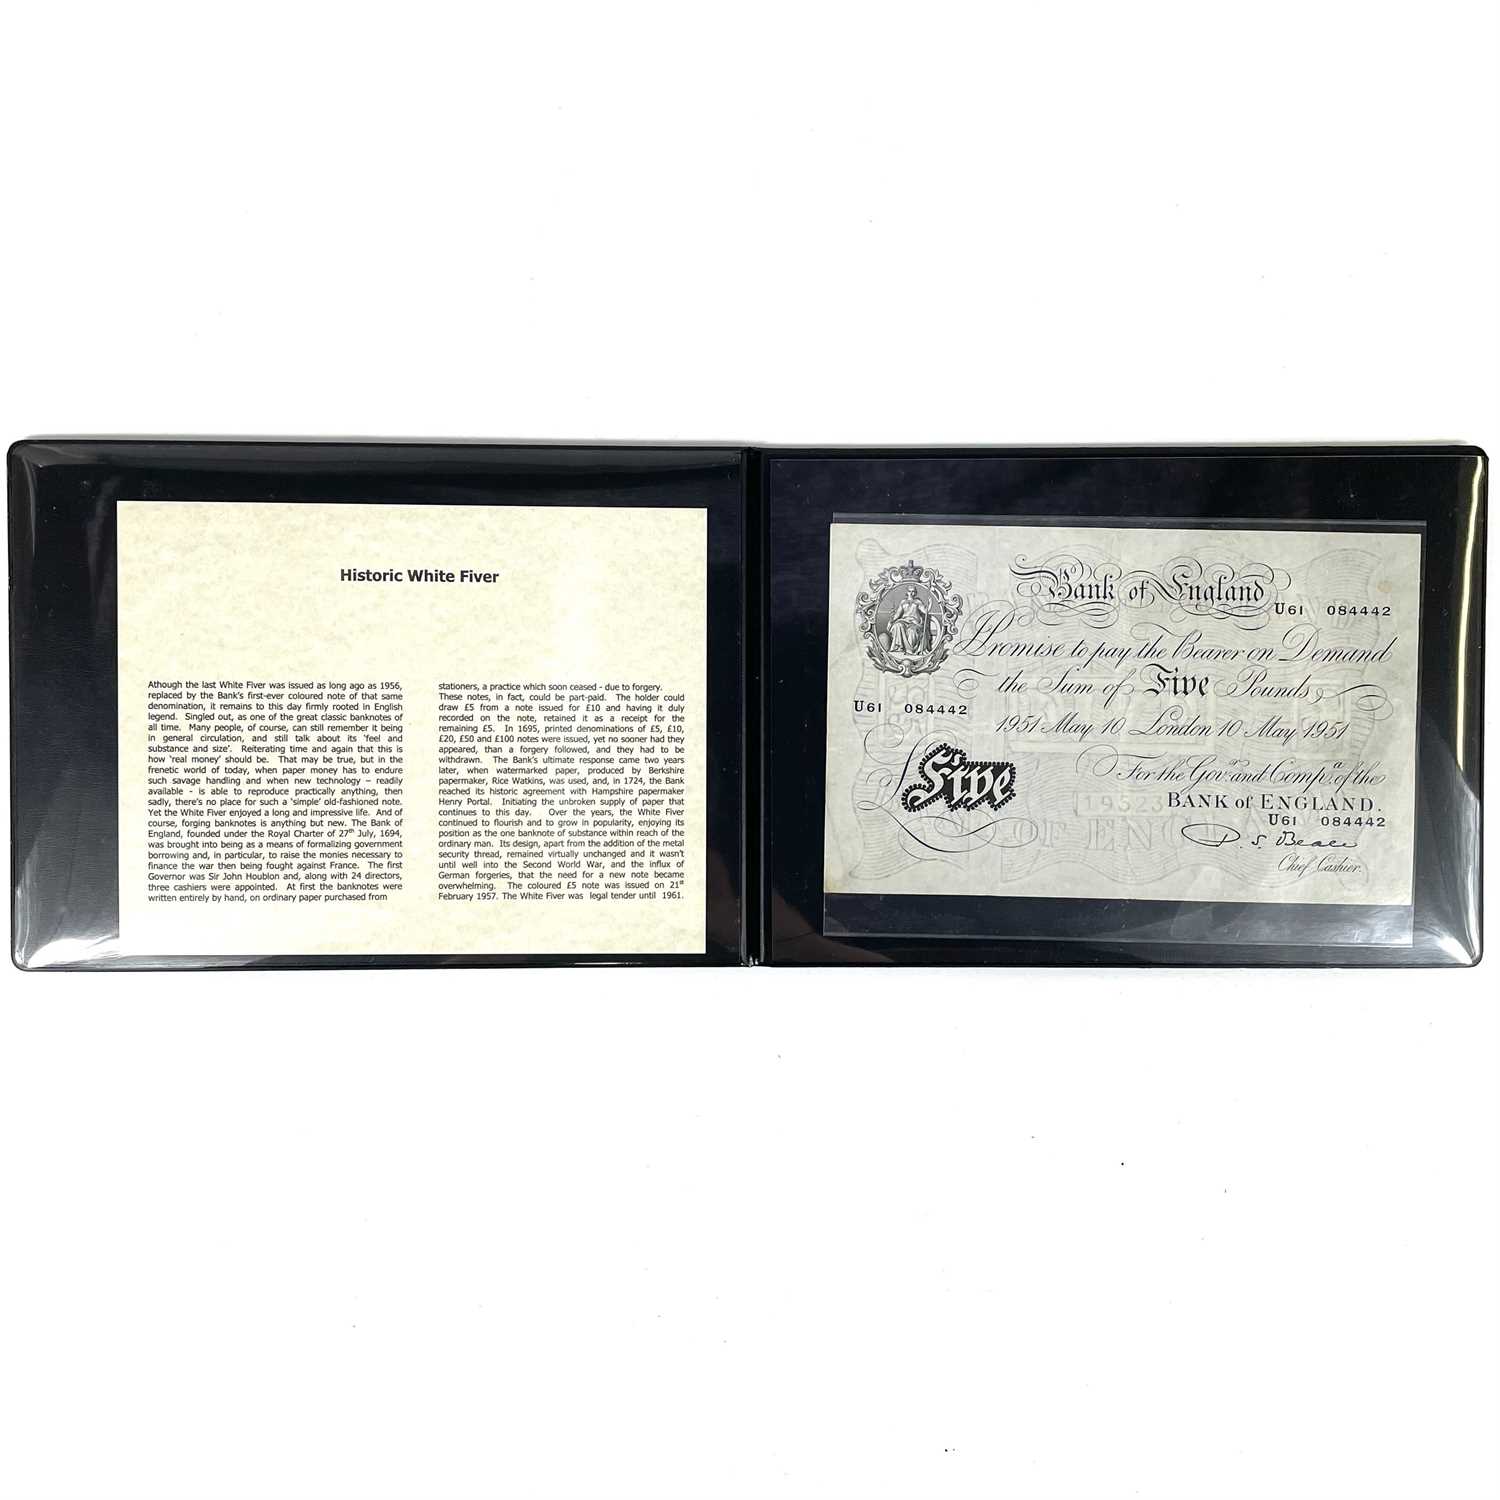 Historic White Fiver
Athough the last White Fiver was issued as long ago as 1956,
replaced by the Bank's first-ever coloured note of that same
denomination, it remains to this day firmly rooted in English
legend. Singled out, as one of the great classic banknotes of
all time. Many people, of course, can still remember it being
in general circulation, and still talk about its 'feel and
substance and size'. Reiterating time and again that this is
how 'real money' should be. That may be true, but in the
frenetic world of today, when paper money has to endure
such savage handling and when new technology – readily
available - is able to reproduce practically anything, then
sadly, there's no place for such a 'simple' old-fashioned note.
Yet the White Fiver enjoyed a long and impressive life. And of
course, forging banknotes is anything but new. The Bank of
England, founded under the Royal Charter of 27th July, 1694,
was brought into being as a means of formalizing government
borrowing and, in particular, to raise the monies necessary to
finance the war then being fought against France. The first
Governor was Sir John Houblon and, along with 24 directors,
three cashiers were appointed. At first the banknotes were
written entirely by hand, on ordinary paper purchased from
stationers, a practice which soon ceased - due to forgery.
These notes, in fact, could be part-paid. The holder could
draw £5 from a note issued for £10 and having it duly
recorded on the note, retained it as a receipt for the
remaining £5. In 1695, printed denominations of £5, £10,
£20, £50 and £100 notes were issued, yet no sooner had they
appeared, than a forgery followed, and they had to be
withdrawn. The Bank's ultimate response came two years
later, when watermarked paper, produced by Berkshire
papermaker, Rice Watkins, was used, and, in 1724, the Bank
reached its historic agreement with Hampshire papermaker
Henry Portal. Initiating the unbroken supply of paper that
continues to this day. Over the years, the White Fiver
continued to flourish and to grow in popularity, enjoying its
position as the one banknote of substance within reach of the
ordinary man. Its design, apart from the addition of the metal
security thread, remained virtually unchanged and it wasn't
until well into the Second World War, and the influx of
German forgeries, that the need for a new note became
overwhelming. The coloured £5 note was issued on 21st
February 1957. The White Fiver was legal tender until 1961.
Bank of England
U61 084442
I Promise to pay the Bearer on Demand
the Sum of Five Pounds
U61 084442
1951 May 10 London 10 May 1951
For the Govr. and Compa. of the
£ Five
BANK of ENGLAND.
U61 084442
P. S. Beale
Chief Cashier.